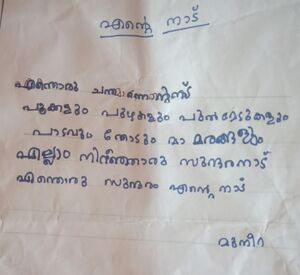 എന്റെ നാട്
എന്തൊരു
പൂക്കളും പുഴകളും പുൽമേടുകളും
പാടവും തോടും മാ മരങ്ങളും
എല്ലാം നിറഞ്ഞൊരു സുന്ദരനാട്
എന്തൊരു സുന്ദരം എന്റെ നാട്
മുനീറ